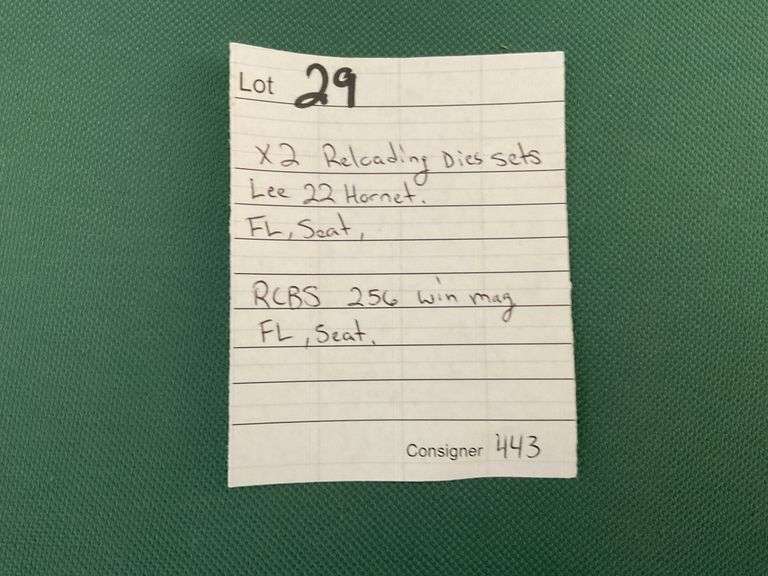 Lot 29
X2 Reloading Dies sets
Lee 22 Hornet.
FL, Seat,
RCBS 256 win mag
FL, Seat.
Consigner 443